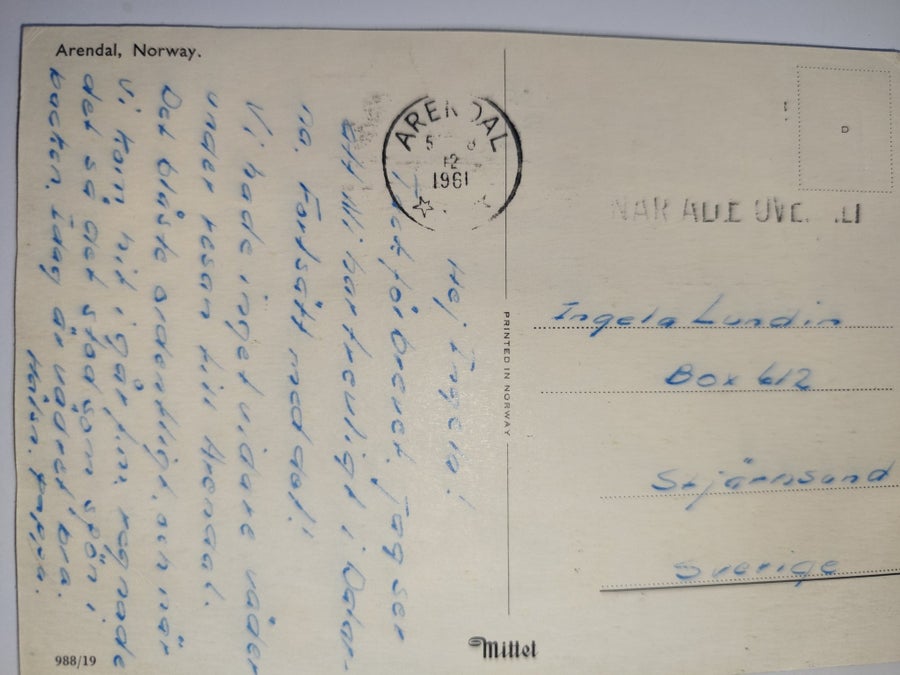 Arendal, Norway.
Hej Ingela!
Tack för brevet. Jag ser
att Ni har trevligt i Dalar-
na. Fortsätt med det!
Vi hade inget vidare väder
under resan till Arendal.
Det blåste ordentligt, och när
vi kom hit igår fm. regnade
det så det stod som spön i
backen. Idag är vädret bra.
Hälsn. pappa.
988/19
PRINTED IN NORWAY
Mittet
ARENDAL
12
1961
Ingela Lundin
Box 612
Stjärnsund
Sverige